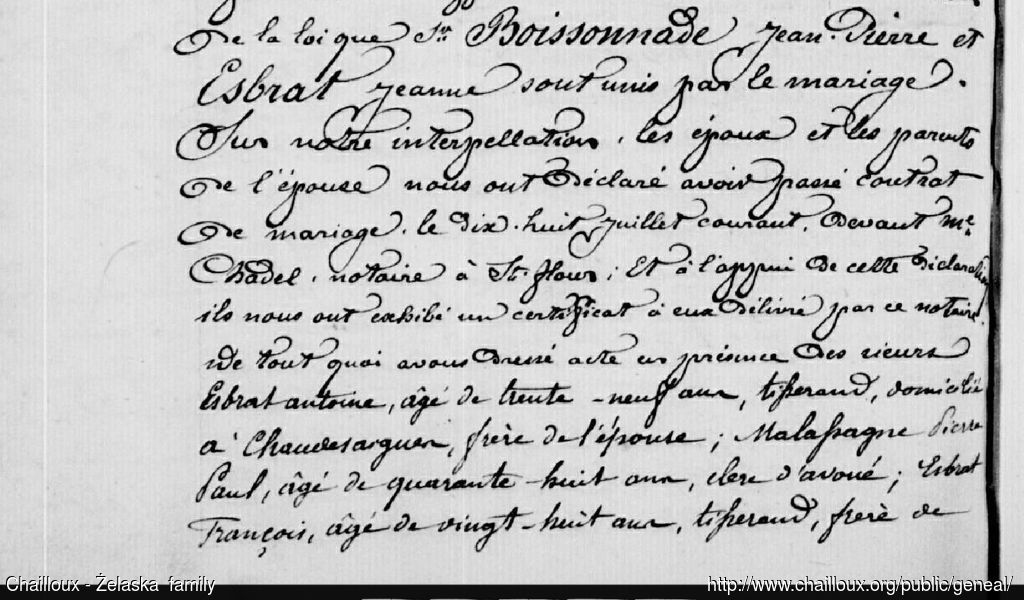 de la loi que Sr. Boissonnade Jean-Pierre et
Esbrat Jeanne sont unis par le mariage.
Sur notre interpellation, les époux et les parents
de l'épouse nous ont déclaré avoir passé contrat
de mariage, le dix-huit Juillet courant, devant Me.
Chadel, notaire à St. flour; Et à l'appui de cette déclaration
ils nous ont exhibé un certificat à eux délivré par ce notaire.
De tout quoi avons dressé acte en présence des sieurs
Esbrat antoine, âgé de trente-neuf ans, tisserand, domicilié
a Chaudesaigues, frère de l'épouse; Malassagne Pierre
Paul, âgé de quarante-huit ans, clerc d'avoué; Esbrat
François, âgé de vingt-huit ans, tisserand, frère de
Chailloux - Żelaska family
http://www.chailloux.org/public/geneal/